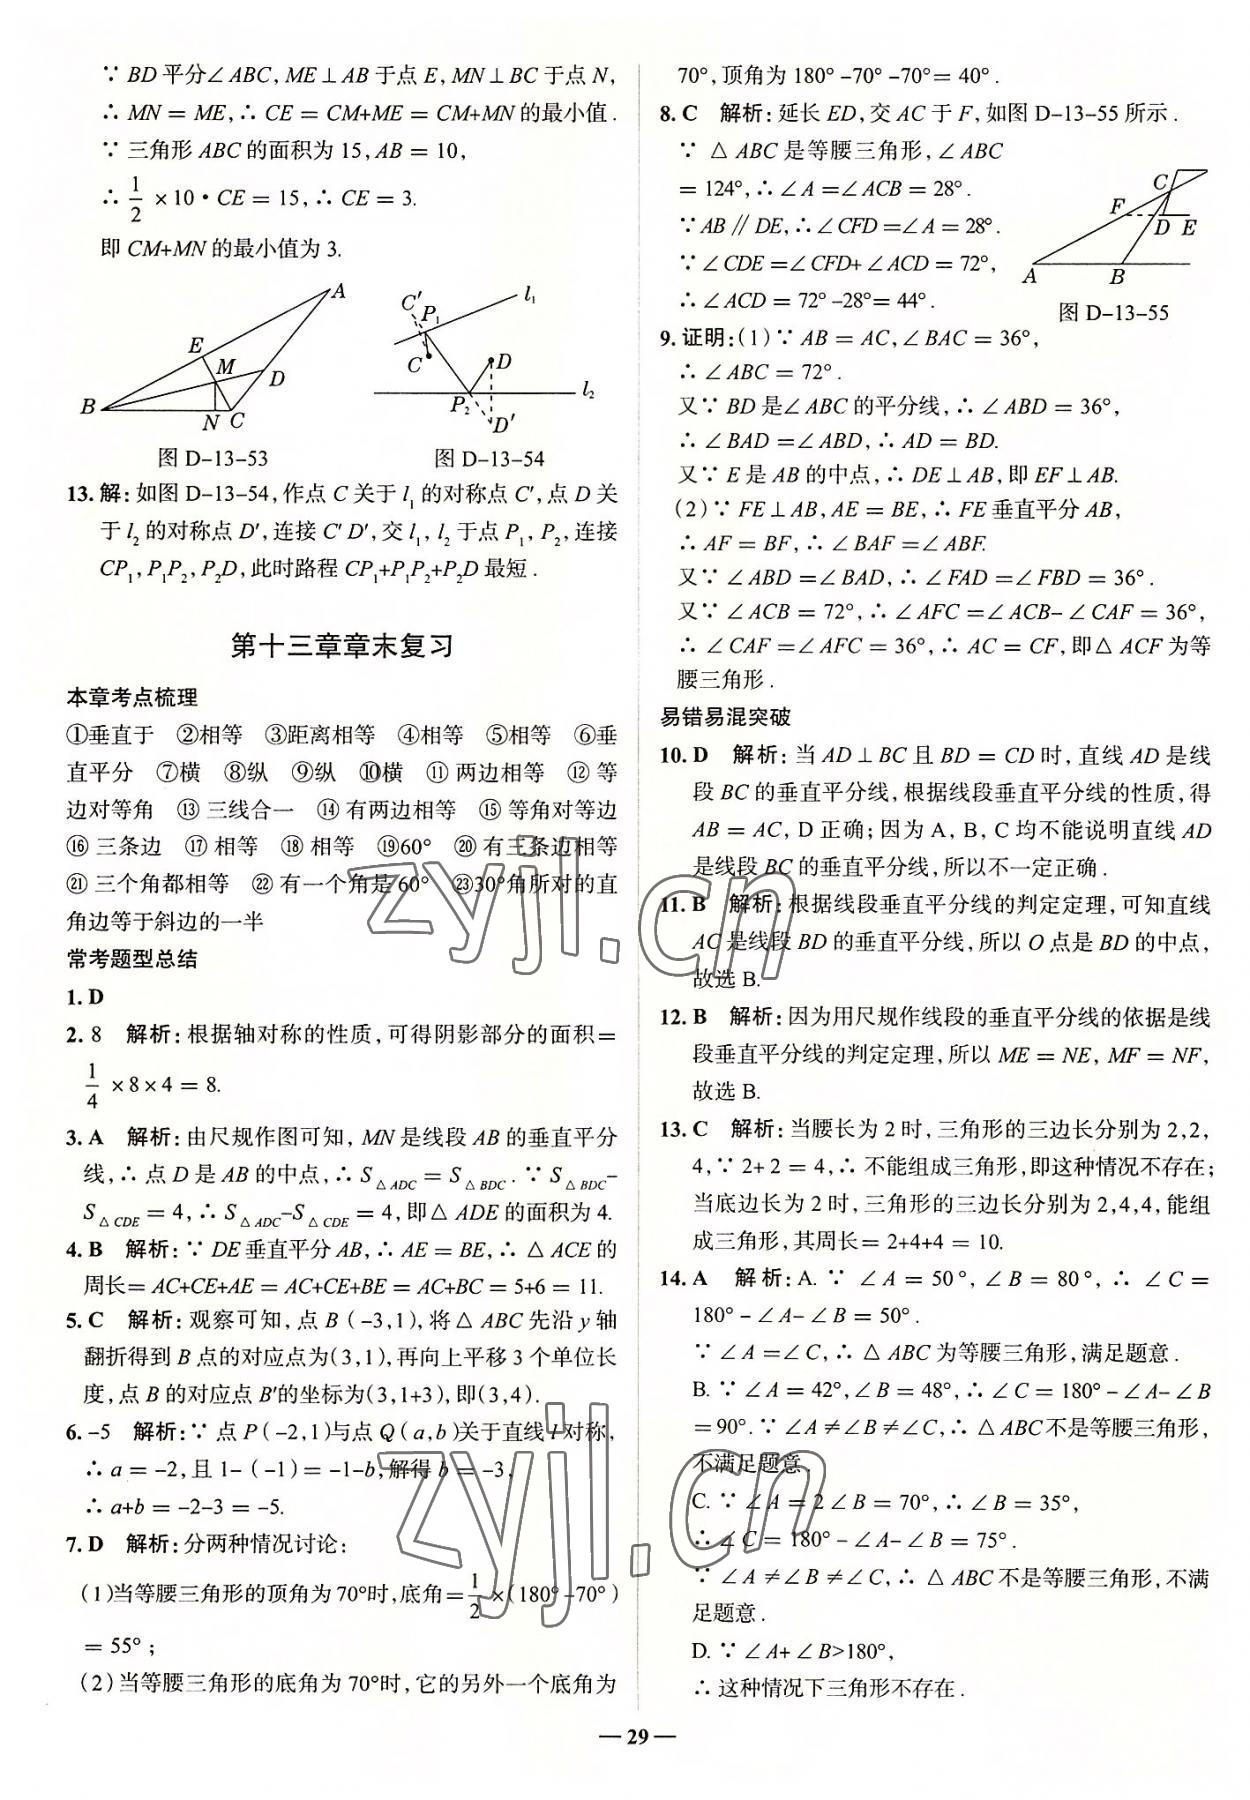 ∵ BD 平分∠ ABC, ME ⊥ AB 于点 E, MN ⊥ BC 于点 N,
∴ MN = ME, ∴ CE = CM+ME = CM+MN 的最小值 .
∵ 三角形 ABC 的面积为 15, AB = 10,
∴ 1/2 ×10·CE = 15, ∴ CE = 3.
即 CM+MN 的最小值为 3.
A
E
M
D
B
N C
图 D-13-53
C′
P₁
l₁
C
D
P₂
l₂
D′
图 D-13-54
13. 解: 如图 D-13-54, 作点 C 关于 l₁ 的对称点 C′, 点 D 关
于 l₂ 的对称点 D′, 连接 C′ D′, 交 l₁, l₂ 于点 P₁, P₂, 连接
CP₁, P₁P₂, P₂D, 此时路程 CP₁+P₁P₂+P₂D 最短 .
第十三章章末复习
本章考点梳理
①垂直于 ②相等 ③距离相等 ④相等 ⑤相等 ⑥垂
直平分 ⑦横 ⑧纵 ⑨纵 ⑩横 ⑪ 两边相等 ⑫ 等
边对等角 ⑬ 三线合一 ⑭ 有两边相等 ⑮ 等角对等边
⑯ 三条边 ⑰ 相等 ⑱ 相等 ⑲60° ⑳ 有三条边相等
㉑ 三个角都相等 ㉒ 有一个角是 60° ㉓30°角所对的直
角边等于斜边的一半
常考题型总结
1. D
2. 8 解析: 根据轴对称的性质, 可得阴影部分的面积=
1/4 ×8×4 = 8.
3. A 解析: 由尺规作图可知, MN 是线段 AB 的垂直平分
线, ∴ 点 D 是 AB 的中点, ∴ S△ADC = S△BDC. ∵ S△BDC–
S△CDE = 4, ∴ S△ADC–S△CDE = 4, 即△ ADE 的面积为 4.
4. B 解析: ∵ DE 垂直平分 AB, ∴ AE = BE, ∴ △ ACE 的
周长= AC+CE+AE = AC+CE+BE = AC+BC = 5+6 = 11.
5. C 解析: 观察可知, 点 B (–3,1), 将△ ABC 先沿 y 轴
翻折得到 B 点的对应点为(3,1), 再向上平移 3 个单位长
度, 点 B 的对应点 B′的坐标为(3,1+3), 即(3,4).
6. –5 解析: ∵ 点 P (–2,1)与点 Q (a,b)关于直线 l 对称,
∴ a = –2, 且 1–(–1) = –1–b, 解得 b = –3,
∴ a+b = –2–3 = –5.
7. D 解析: 分两种情况讨论:
(1)当等腰三角形的顶角为 70°时, 底角= 1/2 ×(180°–70°)
= 55° ;
(2)当等腰三角形的底角为 70°时, 它的另外一个底角为
70°, 顶角为 180° –70° –70°= 40° .
8. C 解析: 延长 ED, 交 AC 于 F, 如图 D-13-55 所示 .
∵ △ ABC 是等腰三角形, ∠ ABC
= 124°, ∴ ∠ A =∠ ACB = 28° .
∵AB ∥ DE, ∴∠ CFD =∠ A = 28° .
∵∠ CDE =∠ CFD+ ∠ ACD = 72°,
∴ ∠ ACD = 72° –28°= 44° .
C
F
D E
A
B
图 D-13-55
9. 证明: (1) ∵ AB = AC, ∠ BAC = 36°,
∴ ∠ ABC = 72° .
又∵ BD 是∠ ABC 的平分线, ∴ ∠ ABD = 36°,
∴ ∠ BAD =∠ ABD, ∴ AD = BD.
又∵ E 是 AB 的中点, ∴ DE ⊥ AB, 即 EF ⊥ AB.
(2) ∵ FE ⊥ AB, AE = BE, ∴ FE 垂直平分 AB,
∴ AF = BF, ∴ ∠ BAF =∠ ABF.
又∵ ∠ ABD =∠ BAD, ∴ ∠ FAD =∠ FBD = 36° .
又∵ ∠ ACB = 72°, ∴ ∠ AFC =∠ ACB– ∠ CAF = 36°,
∴ ∠ CAF =∠ AFC = 36°, ∴ AC = CF, 即△ ACF 为等
腰三角形 .
易错易混突破
10. D 解析: 当 AD ⊥ BC 且 BD = CD 时, 直线 AD 是线
段 BC 的垂直平分线, 根据线段垂直平分线的性质, 得
AB = AC, D 正确; 因为 A, B, C 均不能说明直线 AD
是线段 BC 的垂直平分线, 所以不一定正确 .
11. B 解析: 根据线段垂直平分线的判定定理, 可知直线
AC 是线段 BD 的垂直平分线, 所以 O 点是 BD 的中点,
故选 B.
12. B 解析: 因为用尺规作线段的垂直平分线的依据是线
段垂直平分线的判定定理, 所以 ME = NE, MF = NF,
故选 B.
13. C 解析: 当腰长为 2 时, 三角形的三边长分别为 2,2,
4, ∵ 2+ 2 = 4, ∴ 不能组成三角形, 即这种情况不存在;
当底边长为 2 时, 三角形的三边长分别为 2,4,4, 能组
成三角形, 其周长= 2+4+4 = 10.
14. A 解析: A. ∵ ∠ A = 50°, ∠ B = 80°, ∴ ∠ C =
180° – ∠ A– ∠ B = 50° .
∵ ∠ A =∠ C, ∴ △ ABC 为等腰三角形, 满足题意 .
B. ∵ ∠ A = 42°, ∠ B = 48°, ∴ ∠ C = 180° – ∠ A– ∠ B
= 90° . ∵ ∠ A ≠∠ B ≠∠ C, ∴ △ ABC 不是等腰三角形,
不满足题意 .
C. ∵ ∠ A = 2 ∠ B = 70°, ∴ ∠ B = 35°,
∴ ∠ C = 180° – ∠ A– ∠ B = 75° .
∵ ∠ A ≠∠ B ≠∠ C, ∴ △ ABC 不是等腰三角形, 不满
足题意 .
D. ∵ ∠ A+ ∠ B>180°,
∴ 这种情况下三角形不存在 .
zyjl.cn
zyjl.cn
— 29 —